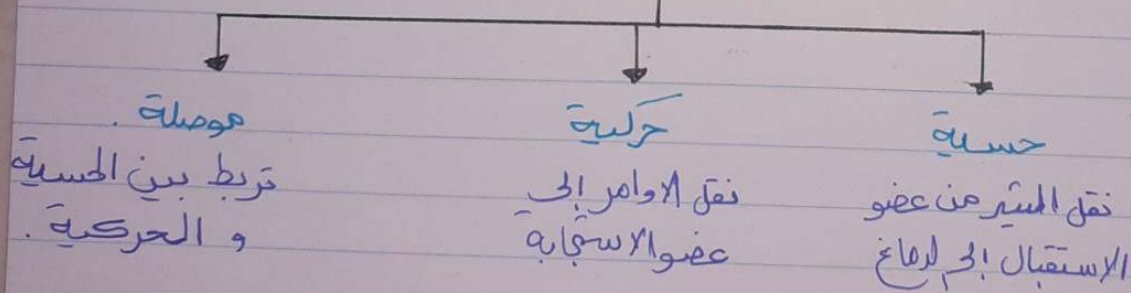 حسية
نقل المثير من عضو
الاستقبال إلى الدماغ
حركية
نقل الاوامر إلى
عضو الاستجابة
موصلة.
تربط بين الحسية
و الحركية.